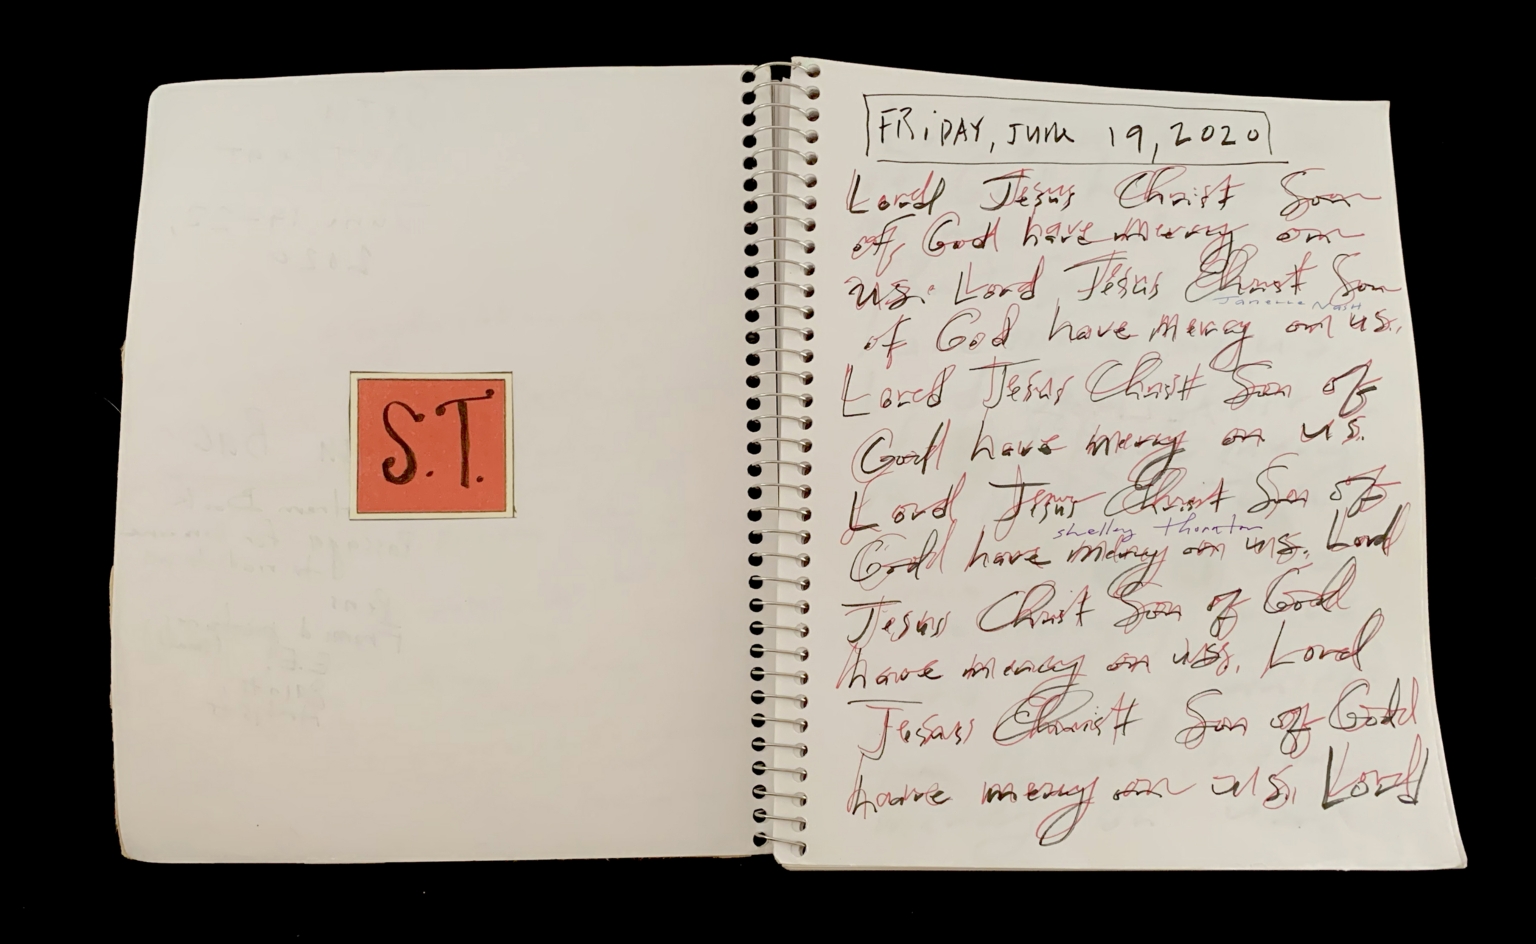 S.T.
FRiDAY, JUNE 19, 2020
Lord Jesus Christ Son
of God have mercy on
us. Lord Jesus Christ Son
Nash
of God have mercy on us.
Lord Jesus Christ Son of
God have mercy on us.
Lord Jesus Christ Son of
shelley thornton
God have mercy on us. Lord
Jesus Christ Son of God
have mercy on us. Lord
Jesus Christ Son of God
have mercy on us. Lord